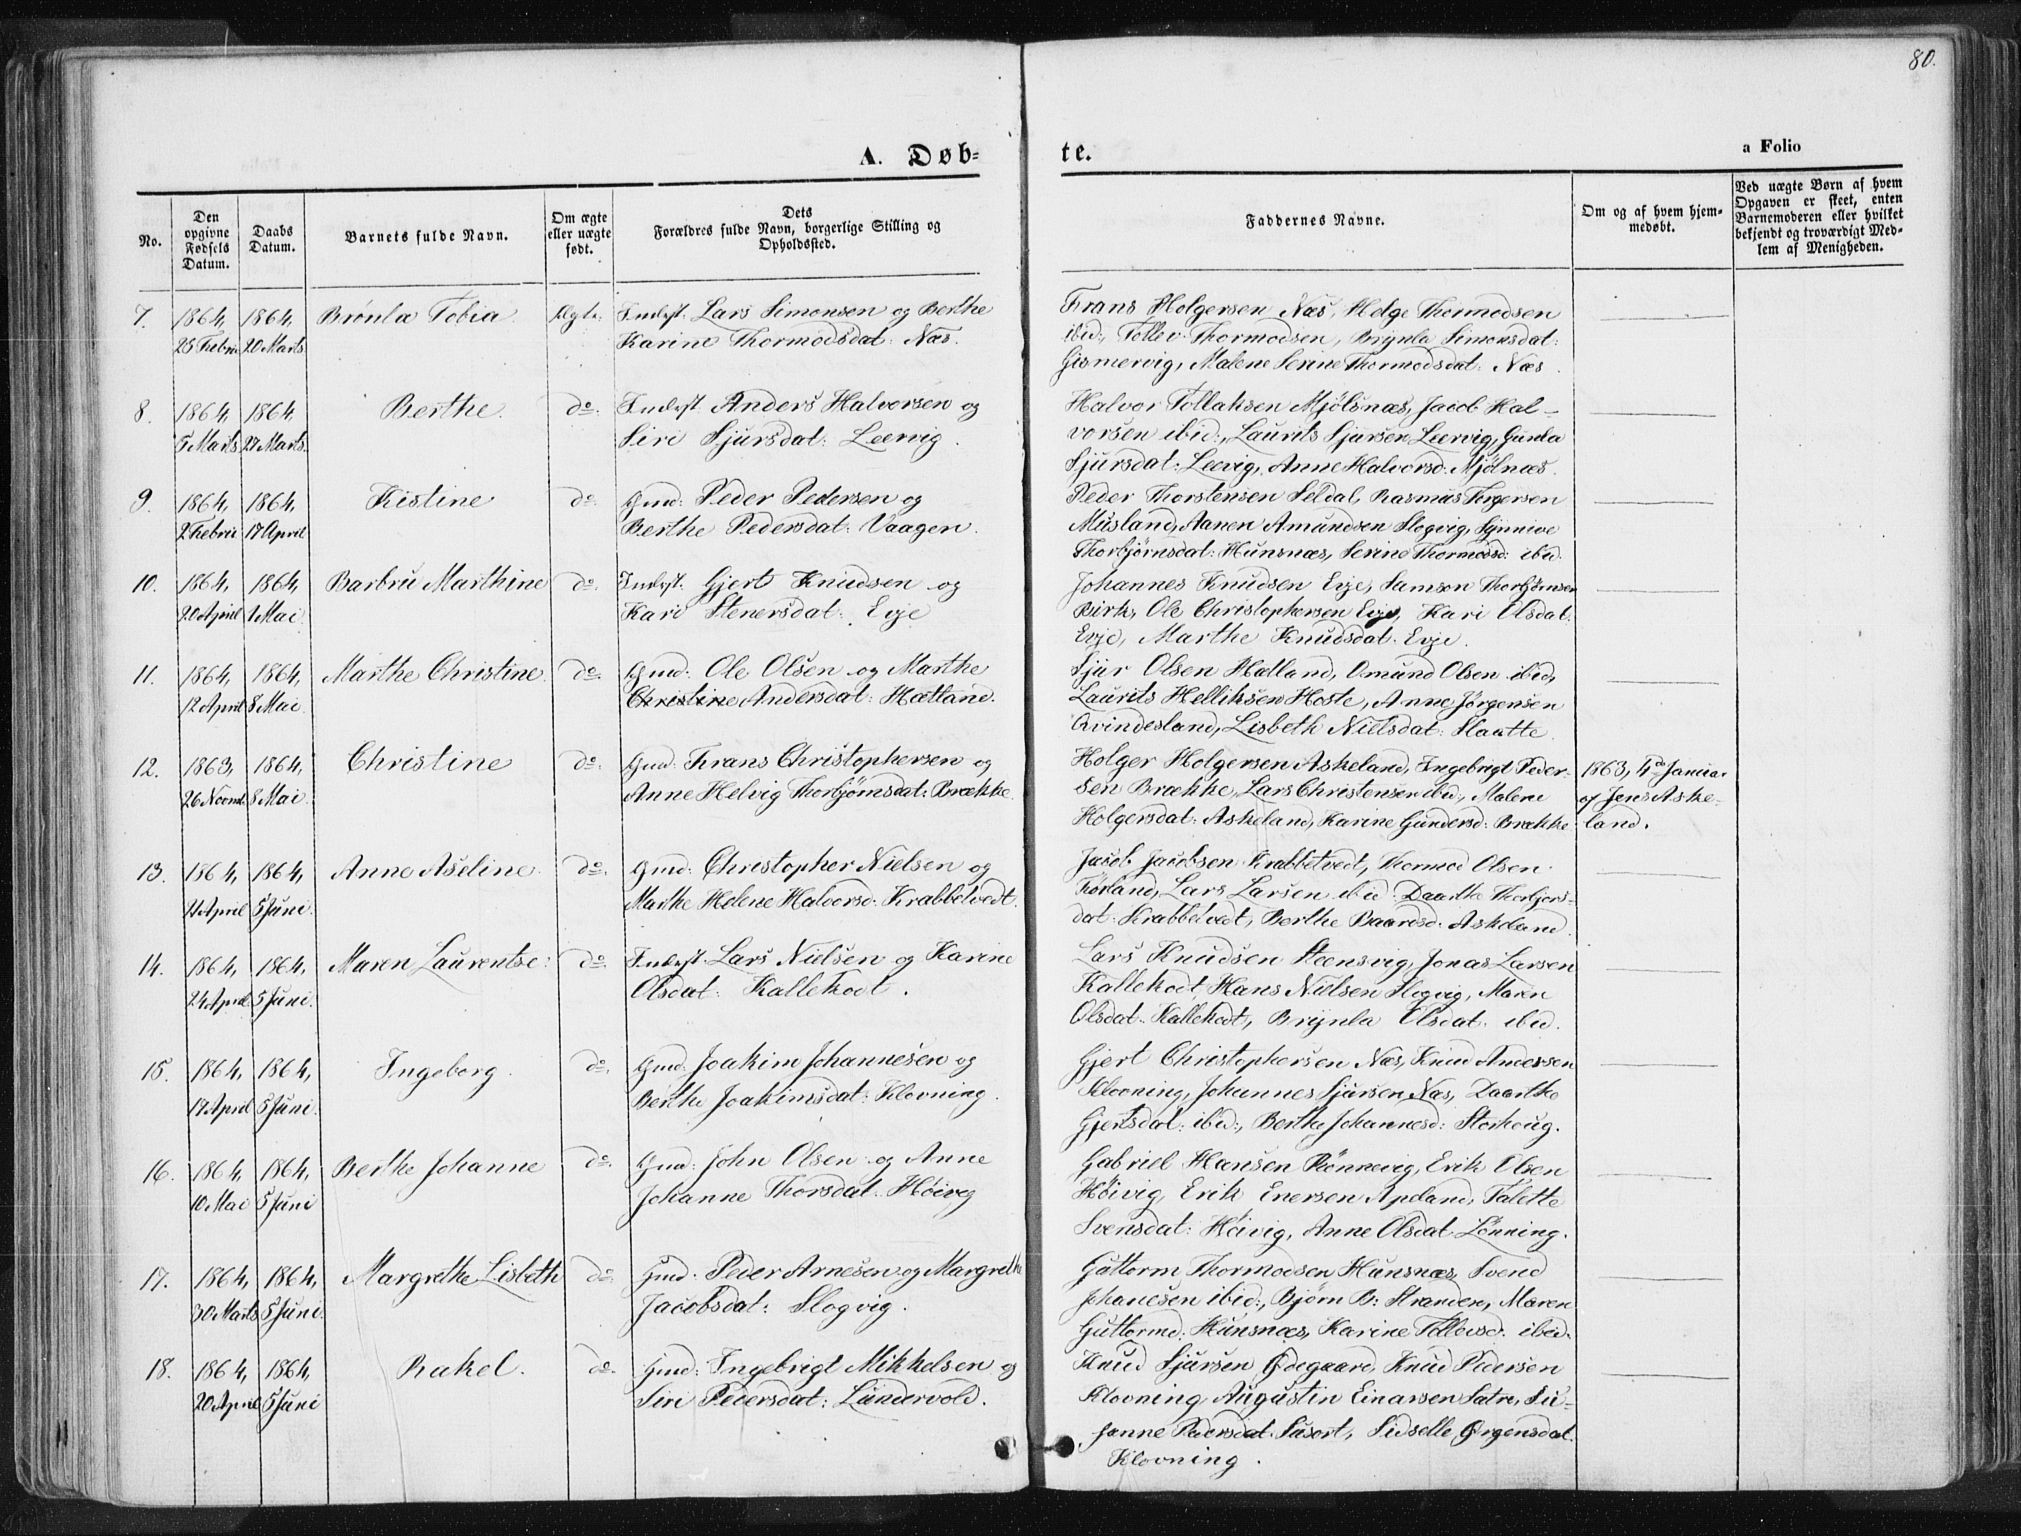 80.
A. Døb-
te.
a Folio
No.
Den opgivne Fødsels Datum.
Daabs Datum.
Barnets fulde Navn.
Om ægte eller uægte født.
Dets Forældres fulde Navn, borgerlige Stilling og Opholdssted.
Faddernes Navne.
Om og af hvem hjemmedøbt.
Ved uægte Børn af hvem Opgaven er skeet, enten Barnemoderen eller hvilket bekjendt og troværdigt Medlem af Menigheden.
7. 1864, 1864, Brønla Tobia. Ægte. Inderst. Lars Simonsen og Berthe
25 Februa 20 Marts. Karine Thormodsdat: Næs.
Frans Holgersen Næs, Helge Thormodsen
ibid:, Tollev Thormodsen, Brynla Simonsdat:
Gismervig, Malene Serine Thormodsdat: Næs.
8. 1864, 1864, Berthe. do. Inderst. Anders Halvorsen og
5 Marts 27 Marts. Siri Sjursdat: Leervig.
Halvor Tollaksen Mjølsnæs, Jacob Hal-
vorsen ibid:, Laurits Sjursen Leervig, Gunla
Sjursdat: Leevig, Anne Halvorsd: Mjølnæs.
9. 1864, 1864, Kistine do. Gmd: Peder Pedersen og
2 Februa 17 April Berthe Pedersdat: Vaagen.
Peder Thorstensen Seldal, Rasmus Torgersen
Musland, Aanen Amundsen Slogvig, Synnive
Thorbjørnsdat: Hunsnæs, Serine Thormodsd: ibid.
10. 1864, 1864, Barbru Marthine do. Inderst: Gjert Knudsen og
20 April 1 Mai. Kari Stenersdat: Evje
Johannes Knudsen Evje, Samson Thorbjørnsen
Birk, Ole Christophersen Evje, Kari Olsdat:
Evje, Marthe Knudsdat: Evje.
11. 1864, 1864, Marthe Christine. do. Gmd: Ole Olsen og Marthe
12 April 8 Mai. Christine Andersdat: Hætland.
Sjur Olsen Hætland, Omund Olsen ibid,
Laurits Helliksen Hoste, Anne Jørgensen
Qvindesland, Lisbeth Nielsdat: Slaatte.
12. 1863, 1864, Christine do. Gmd: Frans Christophersen og
26 Novmb. 8 Mai. Anne Helvig Thorbjørnsdat: Brække.
Holger Holgersen Askeland, Ingebrigt Peder-
sen Brække, Lars Christensen ibid:, Malene
Holgersdat: Askeland, Karine Gundersd: Brække.
1863, 4de Januar
af Jens Aske-
land.
13. 1864, 1864, Anne Aseline. do. Gmd: Christopher Nielsen og
21 April 5 Juni. Marthe Helene Halvorsd: Krabbetvedt.
Jacob Jacobsen Krabbetvedt, Thormod Olsen
Førland, Lars Larsen ibid: Daarthe Thorbjørs-
dat: Krabbetvedt, Berthe Baardsd: Askeland.
14. 1864, 1864, Maren Laurentse: do. Inderst Lars Nielsen og Karine
24 April 5 Juni. Olsdat: Kallekodt.
Lars Knudsen Steensvig, Jonas Larsen
Kallekodt, Hans Nielsen Slogvig, Maren
Olsdat: Kallekodt, Brynla Olsdat: ibid.
15. 1864, 1864, Ingeborg. do. Gmd: Joakim Johannesen og
17 April 5 Juni. Berthe Joakimsdat: Klovning.
Gjert Christophersen Næs, Knud Andersen
Klovning, Johannes Sjursen Næs, Daarthe
Gjertsdat: ibid:, Berthe Johannesd: Storhoug.
16. 1864, 1864, Berthe Johanne do. Gmd: John Olsen og Anne
10 Mai 5 Juni Johanne Thorsdat: Høivig
Gabriel Hansen Rønnevig, Erik Olsen
Høivig, Erik Enersen Apeland, Talette
Svensdat: Høivig, Anne Olsdat: Lønning.
17. 1864, 1864, Margrethe Lisbeth do. Gmd: Peder Arnesen og Margrethe
30 Marts 5 Juni. Jacobsdat: Slogvig.
Guttorm Thormodsen Hunsnæs, Svend
Johanesen ibid:, Bjørn B: Stranden, Maren
Guttormd: Hunsnæs, Karine Tollevsd: ibid.
18. 1864, 1864, Rakel. do. Gmd: Ingebrigt Mikkelsen og
20 April 5 Juni Siri Pedersdat: Lundervold.
Knud Sjursen Ødegaard, Knud Pedersen
Klovning, Augustin Einarsen Satre, Su-
sanne Pedersdat: Susort, Sidselle Ørgensdat:
Klovning.